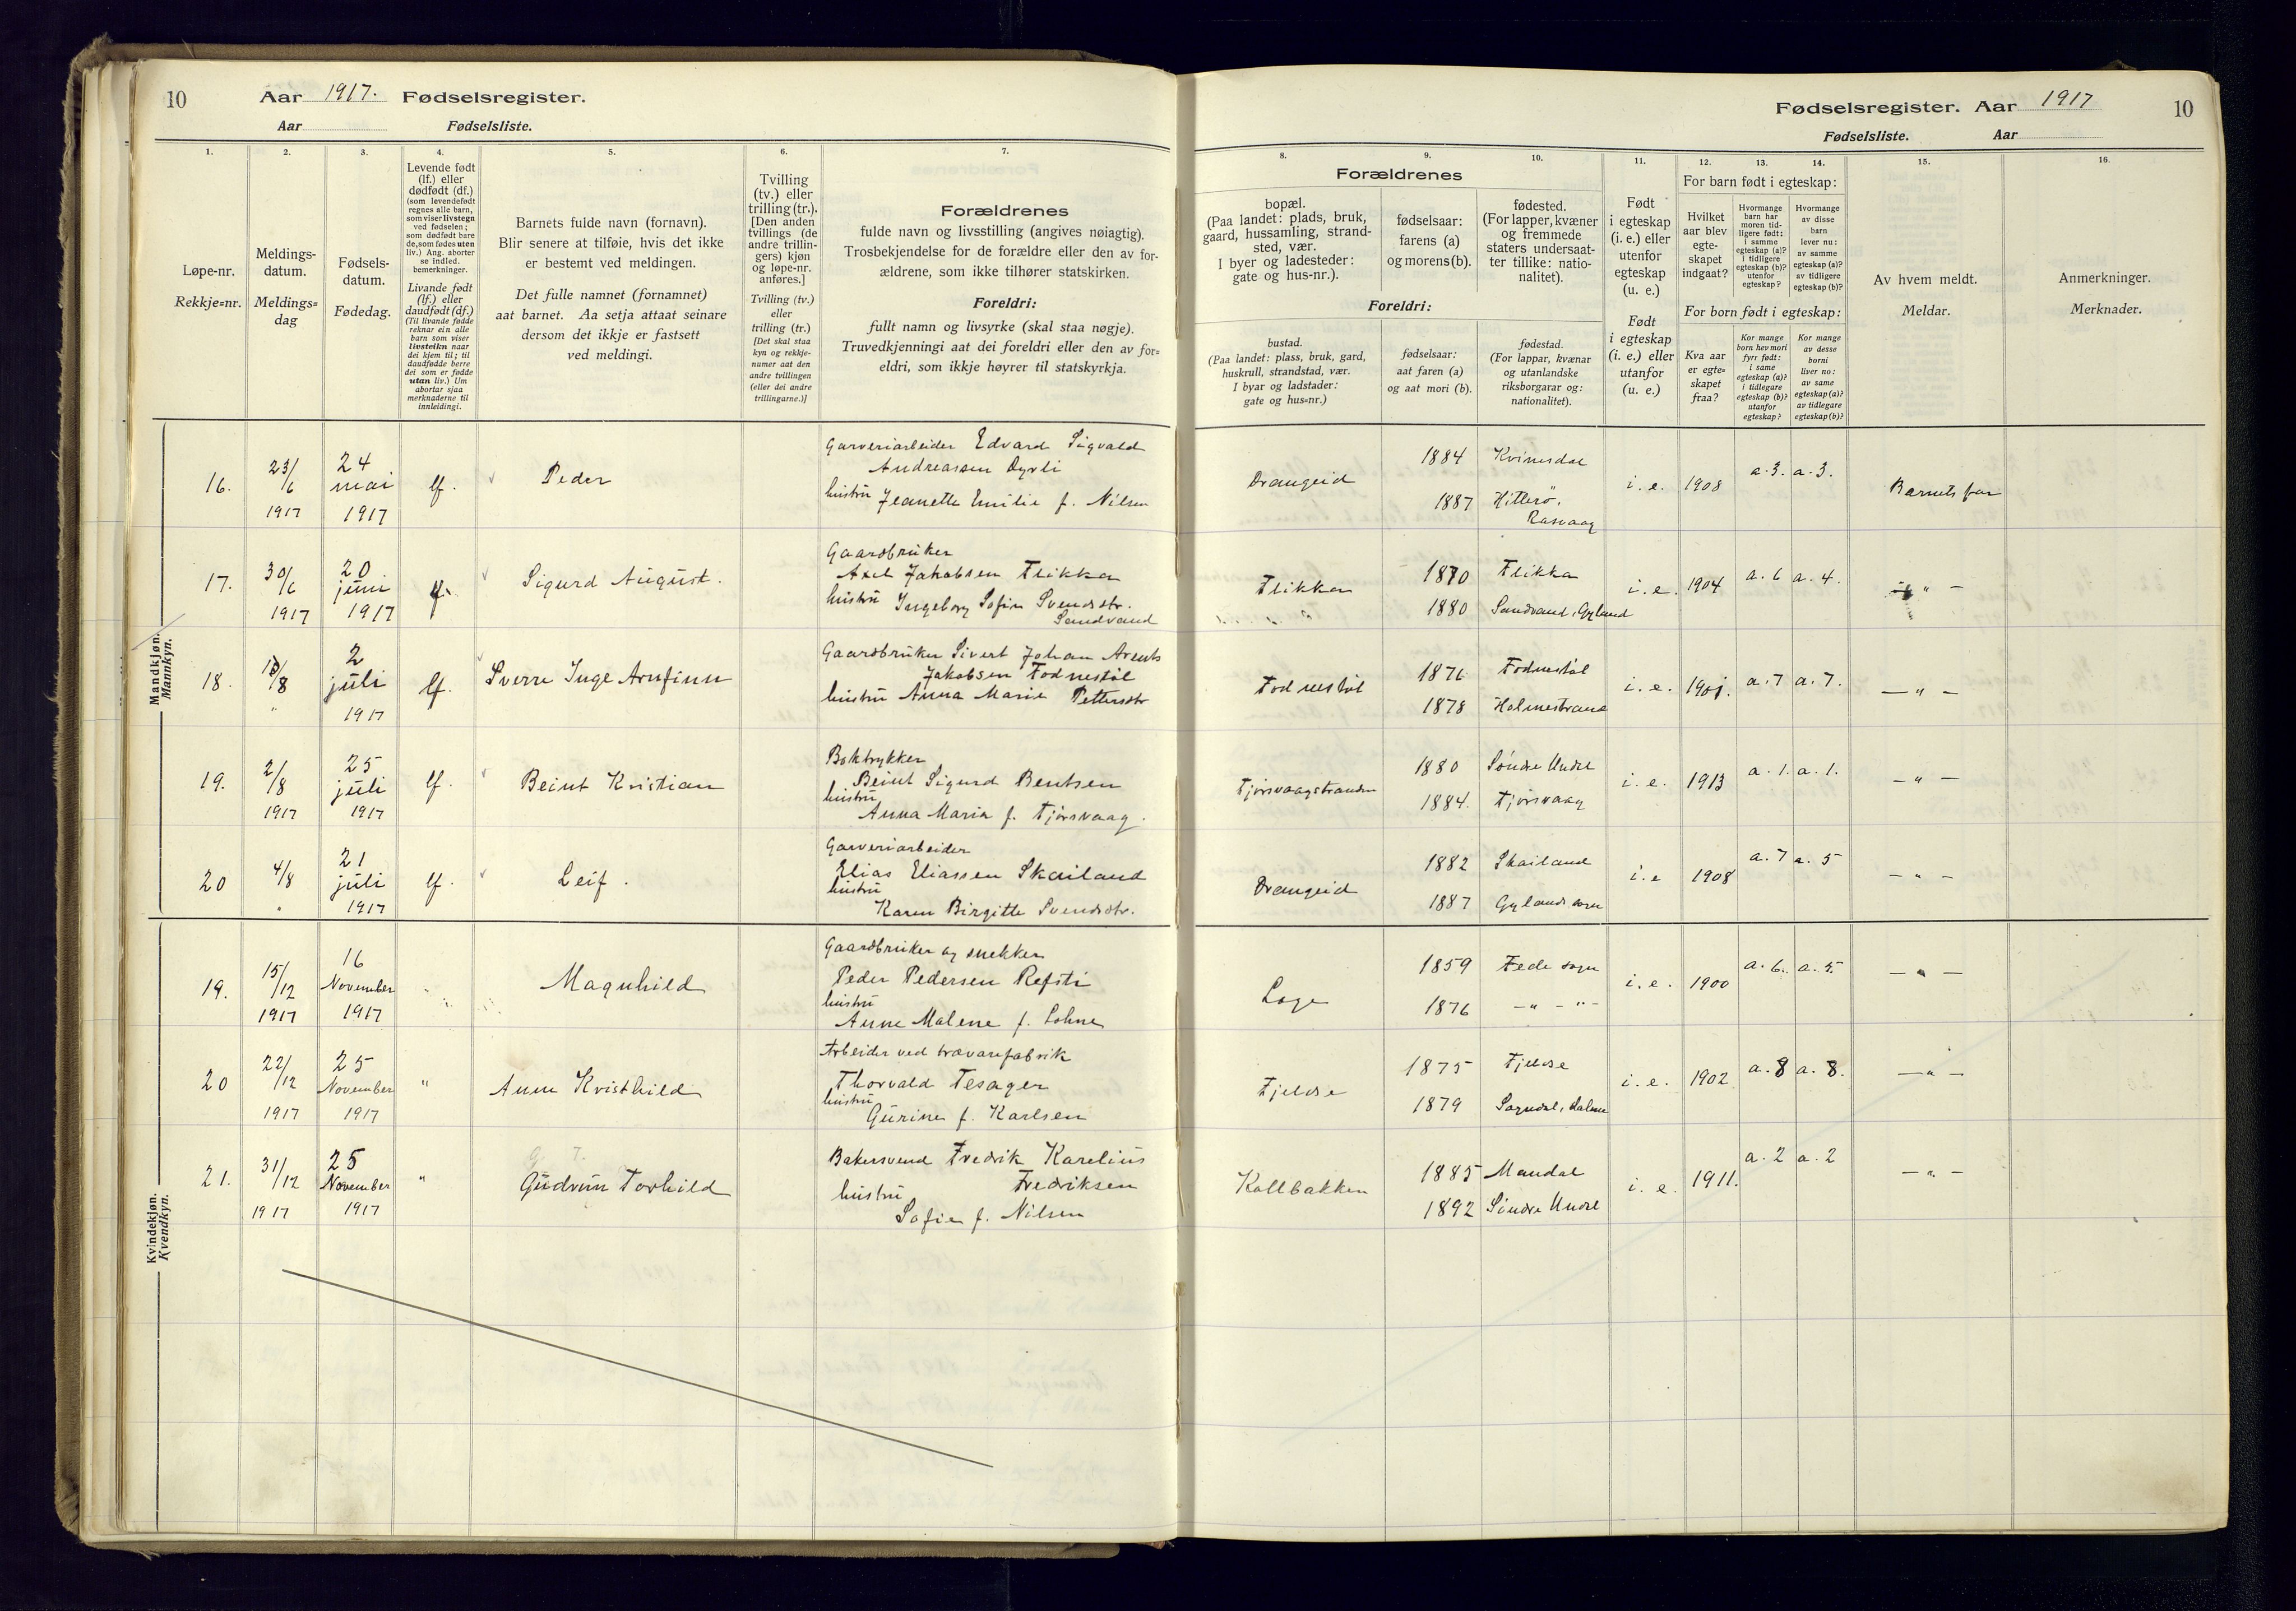 10 Aar 1917. Fødselsregister.
Aar Fødselsliste.
1. 2. 3. 4. 5. 6. 7.
Løpe-nr.
Rekkje=nr.
Meldings-
datum.
Meldings=
dag
Fødsels-
datum.
Fødedag.
Levende født
(lf.) eller
dødfødt (df.)
(som levendefødt
regnes alle barn,
som viser livstegn
ved fødselen;
som dødfødt bare
de, som fødes uten
liv.) Ang. aborter
se indled.
bemerkninger.
Livande født
(lf.) eller
daudfødt (df.)
(Til livande fødde
reknar ein alle
barn som viser
livsteikn naar
dei kjem til; til
daudfødde berre
dei som er fødde
utan liv.) Um
abortar sjaa
merknaderne til
innleidingi.
Barnets fulde navn (fornavn).
Blir senere at tilføie, hvis det ikke
er bestemt ved meldingen.
Det fulle namnet (fornamnet)
aat barnet. Aa setja attaat seinare
dersom det ikkje er fastsett
ved meldingi.
Tvilling
(tv.) eller
trilling (tr.).
[Den anden
tvillings (de
andre trillin-
gers) kjøn
og løpe-nr.
anføres.]
Tvilling (tv.)
eller
trilling (tr.)
[Det skal staa
kyn og rekkje-
numer aat den
andre tvillingen
(eller dei andre
trillingarne.)]
Forældrenes
fulde navn og livsstilling (angives nøiagtig).
Trosbekjendelse for de forældre eller den av for-
ældrene, som ikke tilhører statskirken.
Foreldri:
fullt namn og livsyrke (skal staa nøgje).
Truvedkjenningi aat dei foreldri eller den av for=
eldri, som ikkje høyrer til statskyrkja.
Mandkjøn.
Mannkyn.
16. 23/6 1917 24 mai 1917 lf. Peder
Garveriarbeider Edvard Sigvald
Andreassen Dyrli
hustru Jeanette Emilie f. Nilsen
17. 30/6 1917 20 juni 1917 lf. Sigurd August.
Gaardbruker
Axel Jakobsen Flikka
hustru Ingeborg Sofie Svendsdtr.
Sandvand
18. /8 " 2 juli 1917 lf. Sverre Inge Arnfinn
Gaardbruker Sivert Johan Arents
Jakobsen Fodnestøl
hustru Anna Marie Pettersdtr
19. 2/8 1917 25 juli 1917 lf. Beint Kristian
Boktrykker
Beint Sigurd Bentsen
hustru
Anna Maria f. Tjørsvaag.
20 4/8 " 21 juli 1917 lf. Leif.
Garveriarbeider
Elias Eliassen Skailand
hustru
Karen Birgitte Svendsdtr.
Kvindekjøn.
Kvendkyn.
19. 15/12 1917 16 November 1917 " Magnhild
Gaardbruker og snekker
Peder Pedersen Refsti
hustru
Anne Malene f. Lohne
20 22/12 1917 25 November 1917 " Anne Kristhild
Arbeider ved trævarefabrik
Thorvald Tesager
hustru
Gurine f. Karlsen
21. 31/12 1917 25 November 1917 " Gudrun Torhild
Bakersvend Fredrik Karelius
Fredriksen
hustru
Sofie f. Nilsen
Fødselsregister. Aar 1917 10
Fødselsliste. Aar
8. 9. 10. 11. 12. 13. 14. 15. 16.
Forældrenes
bopæl.
(Paa landet: plads, bruk,
gaard, hussamling, strand-
sted, vær.
I byer og ladesteder:
gate og hus-nr.).
fødselsaar:
farens (a)
og morens (b).
fødested.
(For lapper, kvæner
og fremmede
staters undersaat-
ter tillike: natio-
nalitet).
Foreldri:
bustad.
(Paa landet: plass, bruk, gard,
huskrull, strandstad, vær.
I byar og ladstader:
gate og hus=nr.)
fødselsaar:
aat faren (a)
og aat mori (b).
fødestad.
(For lappar, kvænar
og utanlandske
riksborgarar og:
nationalitet).
Født
i egteskap
(i. e.) eller
utenfor
egteskap
(u. e.)
Født
i egteskap
(i. e.) eller
utanfor
(u. e.)
For barn født i egteskap:
Hvilket
aar blev
egte-
skapet
indgaat?
Hvormange
barn har
moren tid-
ligere født:
i samme
egteskap (a)?
i tidligere
egteskap (b)?
utenfor
egteskap?
Hvormange
av disse
barn
lever nu:
av samme
egteskap (a)?
av tidligere
egteskap (b)?
For born født i egteskap:
Kva aar
er egte=
skapet
fraa?
Kor mange
born hev mori
fyrr født:
i same
egteskap (a)?
i tidlegare
egteskap (b)?
utanfor
egteskap?
Kor mange
av desse
borni
liver no:
av same
egteskap (a)?
av tidlegare
egteskap (b)?
Av hvem meldt.
Meldar.
Anmerkninger.
Merknader.
Drangeid 1884 Kvinesdal i. e. 1908 a. 3. a. 3. Barnets far
1887 Hitterø.
Rasvaag
Flikka 1870 Flikka i. e. 1904 a. 6 a. 4. " —
1880 Sandvand, Gyland
Fodnestøl 1876 Fodnestøl i. e. 1901. a. 7 a. 7. — " —
1878 Holmestrand
Tjørsvaagstranden 1880 Søndre Undal i. e. 1913 a. 1. a. 1. — " —
1884. Tjørsvaag
Drangeid 1882 Skailand i. e 1908 a. 7 a. 5 — " —
1887 Gylands sogn
Loge 1859 Fede sogn i. e. 1900 a. 6. a. 5. — " —
1876 — " — " —
Fjeldse 1875 Fjeldse i. e. 1902 a. 8 a. 8. — " —
1879 Sogndal, Dalene
Kollbakken 1885 Mandal i. e. 1911. a. 2 a. 2 — " —
1892 Søndre Undal